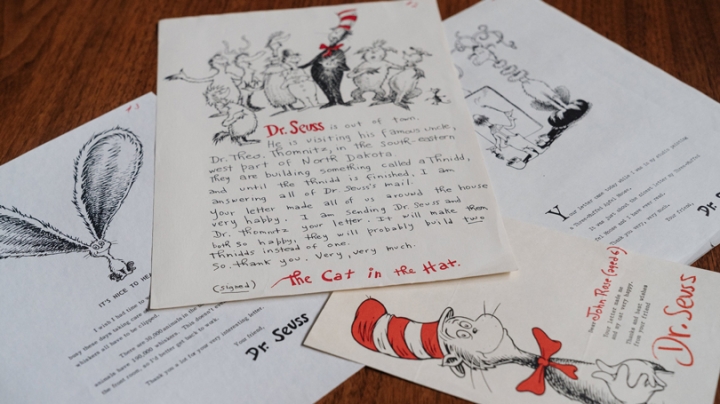 Dr. Seuss is out of town.
He is visiting his famous uncle,
Dr. Theo. Thomnitz, in the south-eastern
west part of North Dakota.
They are building something called a Thnidd,
and until the Thnidd is finished, I am
answering all of Dr. Seuss's mail.
Your letter made all of us around the house
very happy. I am sending Dr. Seuss and
Dr. Thomnitz your letter. It will make them
both so happy, they will probably build two
Thnidds instead of one.
So, thank you. Very, very much.
(signed) The Cat in the Hat.
#3
IT'S NICE TO HEA
I wish I had time to
busy these days taking care
all have to be
There are animals in the
animals have This doesn't
the front room, so I'd better get back to work.
Thank you a lot for your very interesting letter.
Your friend,
Dr. Seuss
Your letter came today while I was in my
Thank you very, very much.
Your friend,
Dr.
Dear John Rose (aged 6)
Your letter made me
and my cat very happy.
Thanks and best wishes
from your friend
Dr. Seuss